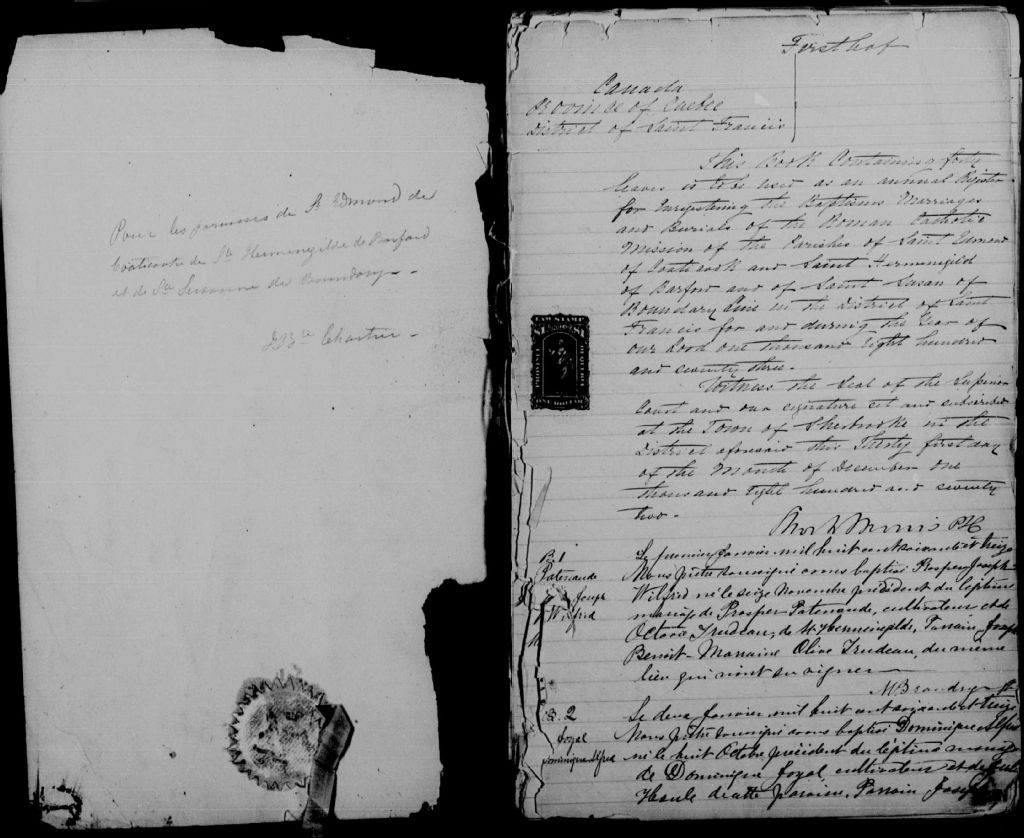 Pour les paroisses de St Edmond de
Coaticooke de Ste Hermenegilde de Barford
et de Ste Susanne de Boundary
J Bte Chartier
First leaf
Canada
Province of Quebec
District of Saint Francis
This Book Containing forty
leaves is to be used as an annual Register
for Inregistering the Baptisms Marriages
and Burials of the Roman Catholic
Mission of the Parishes of Saint Edmond
of Coaticook and Saint Hermenegild
of Barford and of Saint Susan of
Boundary Line in the District of Saint
Francis for and during the Year of
our Lord one thousand Eight hundred
and seventy three.
Witness the Seal of the Superior
Court and our signature set and subscribed
at the Town of Sherbrooke in the
District aforesaid this Thirty first day
of the Month of December One
thousand Eight hundred and seventy
two.
LAW STAMP
PROVINCE
OF QUEBEC
ONE DOLLAR
Morris
B. 1
Patenaude
Joseph
Wilfrid
Le premier Janvier mil huit cent soixante et treize
Nous prêtre soussigné avons baptisé Prosper Joseph
Wilfrid né le seize Novembre précédent du légitime
mariage de Prosper Patenaude, cultivateur et de
Octavie Trudeau, de St Hermenegilde, Parrain Joseph
Benoit - Marraine Olive Trudeau, du même
lieu qui n'ont su signer
B. 2
Joyal
Dominique Alfred
Le deux Janvier mil huit cent soixante et treize
Nous prêtre soussigné avons baptisé Dominique Alfred
né le huit Octobre précédent du légitime mariage
de Dominique Joyal cultivateur et de
Houle de cette paroisse. Parrain Joseph